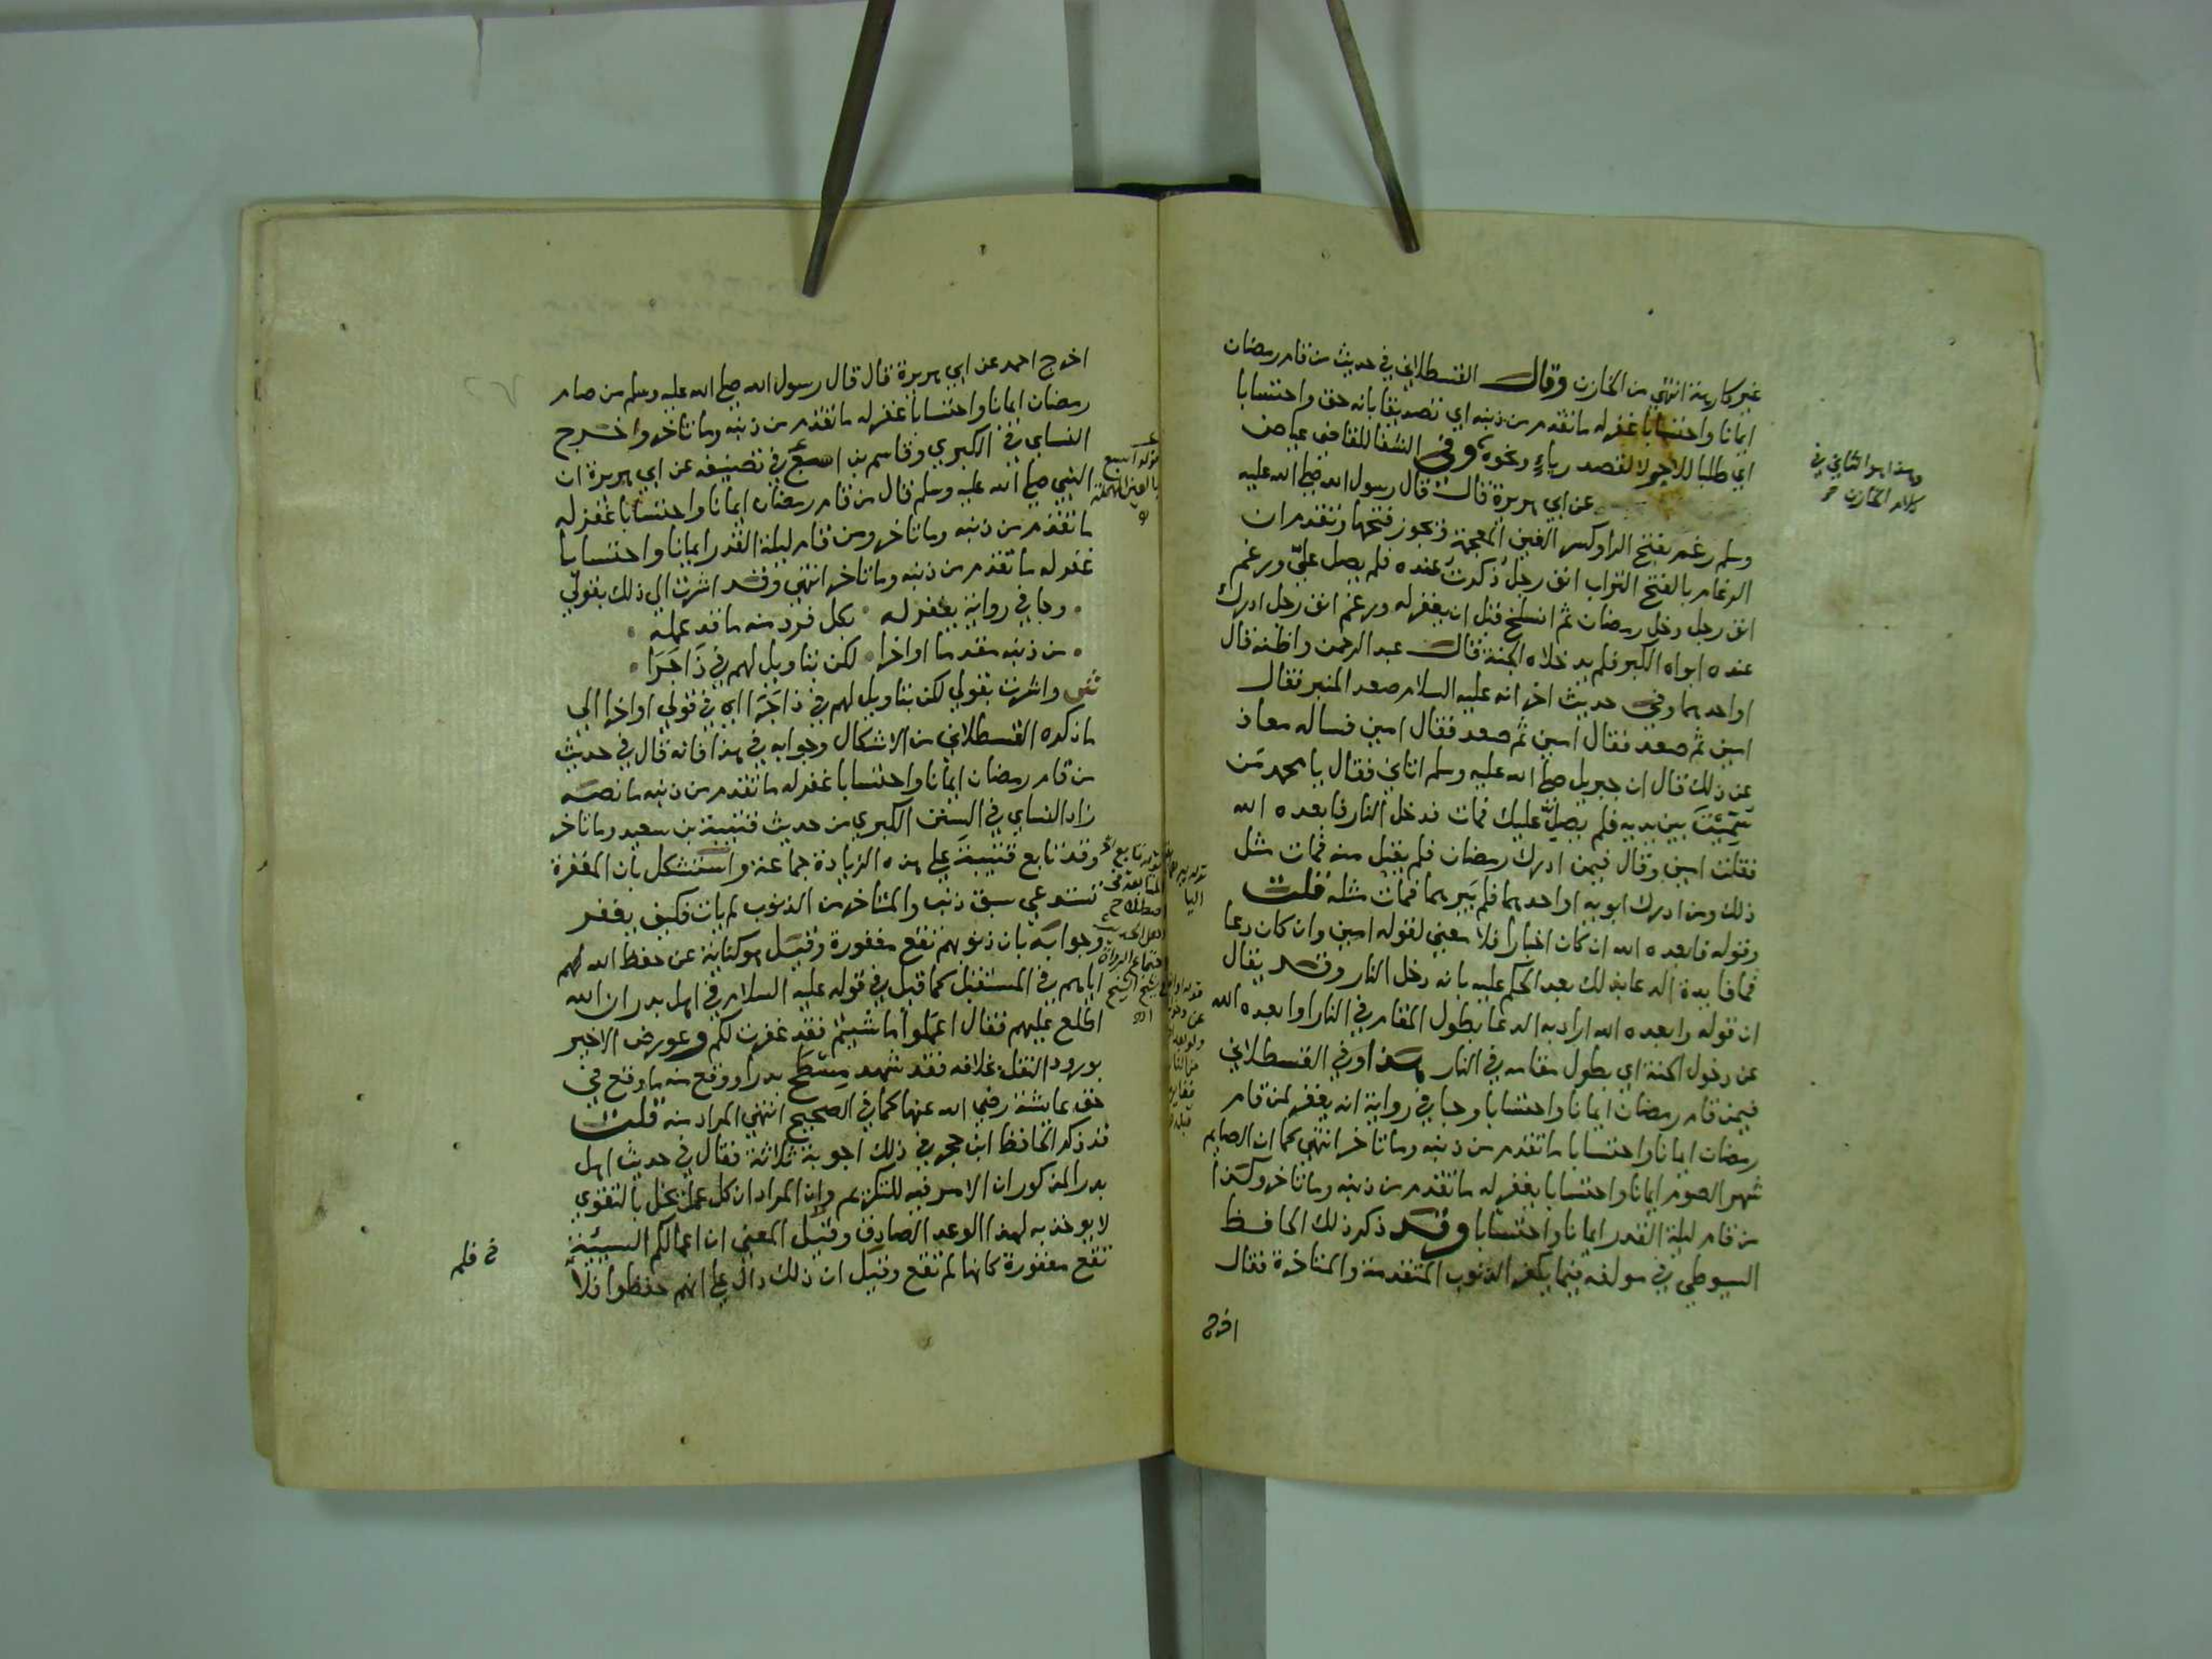 غير كارهة انتهي من الخازن وقال القسطلاني في حديث من قام رمضان
ايمانا واحتسابا غفر له ما تقدم من ذنبه اي تصديقا بانه حق واحتسابا
اي طلبا للاجر لا لقصد رياء ونحوه وفي الشفا للقاضي عياض
عن ابي هريرة قال قال رسول الله صلي الله عليه
وسلم رغم بفتح الرا وكسر الغين المعجمة وتجوز فتحها وتقدم ان
الرغام بالفتح التراب انف رجل ذكرت عنده فلم يصل علي ورغم
انف رجل دخل رمضان ثم انسلخ قبل ان يغفر له ورغم انف رجل ادرك
عنده ابواه الكبر فلم يدخلاه الجنة قال عبد الرحمن واظنه قال
او احدهما وفي حديث اخر انه عليه السلام صعد المنبر فقال
امين ثم صعد فقال امين ثم صعد فقال امين فساله معاذ
عن ذلك فقال ان جبريل صلي الله عليه وسلم اتاني فقال يا محمد من
سميت بين يديه فلم يصل عليك فمات فدخل النار فابعده الله
فقلت امين وقال فيمن ادرك رمضان فلم يقبل منه فمات مثل
ذلك ومن ادرك ابويه او احدهما فلم يبرهما فمات مثله قلت
وقوله فابعده الله ان كان اخبارا فلا معني لقوله امين وان كان دعا
فما فايدة الدعا بذلك بعد الحكم عليه بانه دخل النار وقد يقال
ان قوله وابعده الله اراد به الدعا بطول المقام في النار او ابعده الله
عن دخول الجنة اي بطول مقامه في النار هذا وفي القسطلاني
فيمن قام رمضان ايمانا واحتسابا وجا في رواية انه يغفر لمن قام
رمضان ايمانا واحتسابا ما تقدم من ذنبه وما تاخر انتهي كما ان الصايم
شهر الصوم ايمانا واحتسابا يغفر له ما تقدم من ذنبه وما تاخر وكذا
من قام ليلة القدر ايمانا واحتسابا وقد ذكر ذلك الحافظ
السيوطي في مولفه فيما يكفر الذنوب المتقدمة والمتاخرة فقال
اخرج
وهذا هو الثاني في
كلام الخازن
اخرج احمد عن ابي هريرة قال قال رسول الله صلي الله عليه وسلم من صام
رمضان ايمانا واحتسابا غفر له ما تقدم من ذنبه وما تاخر واخرج
النساي في الكبري وقاسم بن اصبغ في تصنيفه عن ابي هريرة ان
النبي صلي الله عليه وسلم قال من قام رمضان ايمانا واحتسابا غفر له
ما تقدم من ذنبه وما تاخر ومن قام ليلة القدر ايمانا واحتسابا
غفر له ما تقدم من ذنبه وما تاخر انتهي وقد اشرت الي ذلك بقولي
وجا في رواية يغفر له بكل فرد منه ما قد عمله
من ذنبه مقدما اواخرا لكن بتاويل لهم في ذا جرا
واشرت بقولي لكن بتاويل لهم في ذا جرا اي في قولي اواخرا الي
ما ذكره القسطلاني من الاشكال وجوابه في هذا فانه قال في حديث
من قام رمضان ايمانا واحتسابا غفر له ما تقدم من ذنبه ما نصه
زاد النساي في السنن الكبري من حديث قتيبة بن سعيد وما تاخر
وقد تابع قتيبة علي هذه الزيادة جماعة واستشكل بان المغفرة
تستدعي سبق ذنب والمتاخر من الذنوب لم يات فكيف يغفر
وجوابه بان ذنوبهم تقع مغفورة وقيل هو كناية عن حفظ الله لهم
اياهم في المستقبل كما قيل في قوله عليه السلام في اهل بدر ان الله
اطلع عليهم فقال اعملوا ما شيتم فقد غفرت لكم وعورض الاخير
بورود النقل بخلافه فقد شهد مسطح بدرا ووقع منه ما وقع في
حق عايشة رضي الله عنها كما في الصحيح انتهي المراد منه قلت
قد ذكر الحافظ ابن حجر في ذلك اجوبة ثلاثة فقال في حديث اهل
بدر المذكور ان الامر فيه للتكريم وان المراد ان كل عمل يخل بالتقوي
لا يوخذ به لهذا الوعد الصادق وقيل المعني ان اعمالكم السيئة
تقع مغفورة كانها لم تقع وقيل ان ذلك دال علي انهم حفظوا فلا
قوله اصبغ